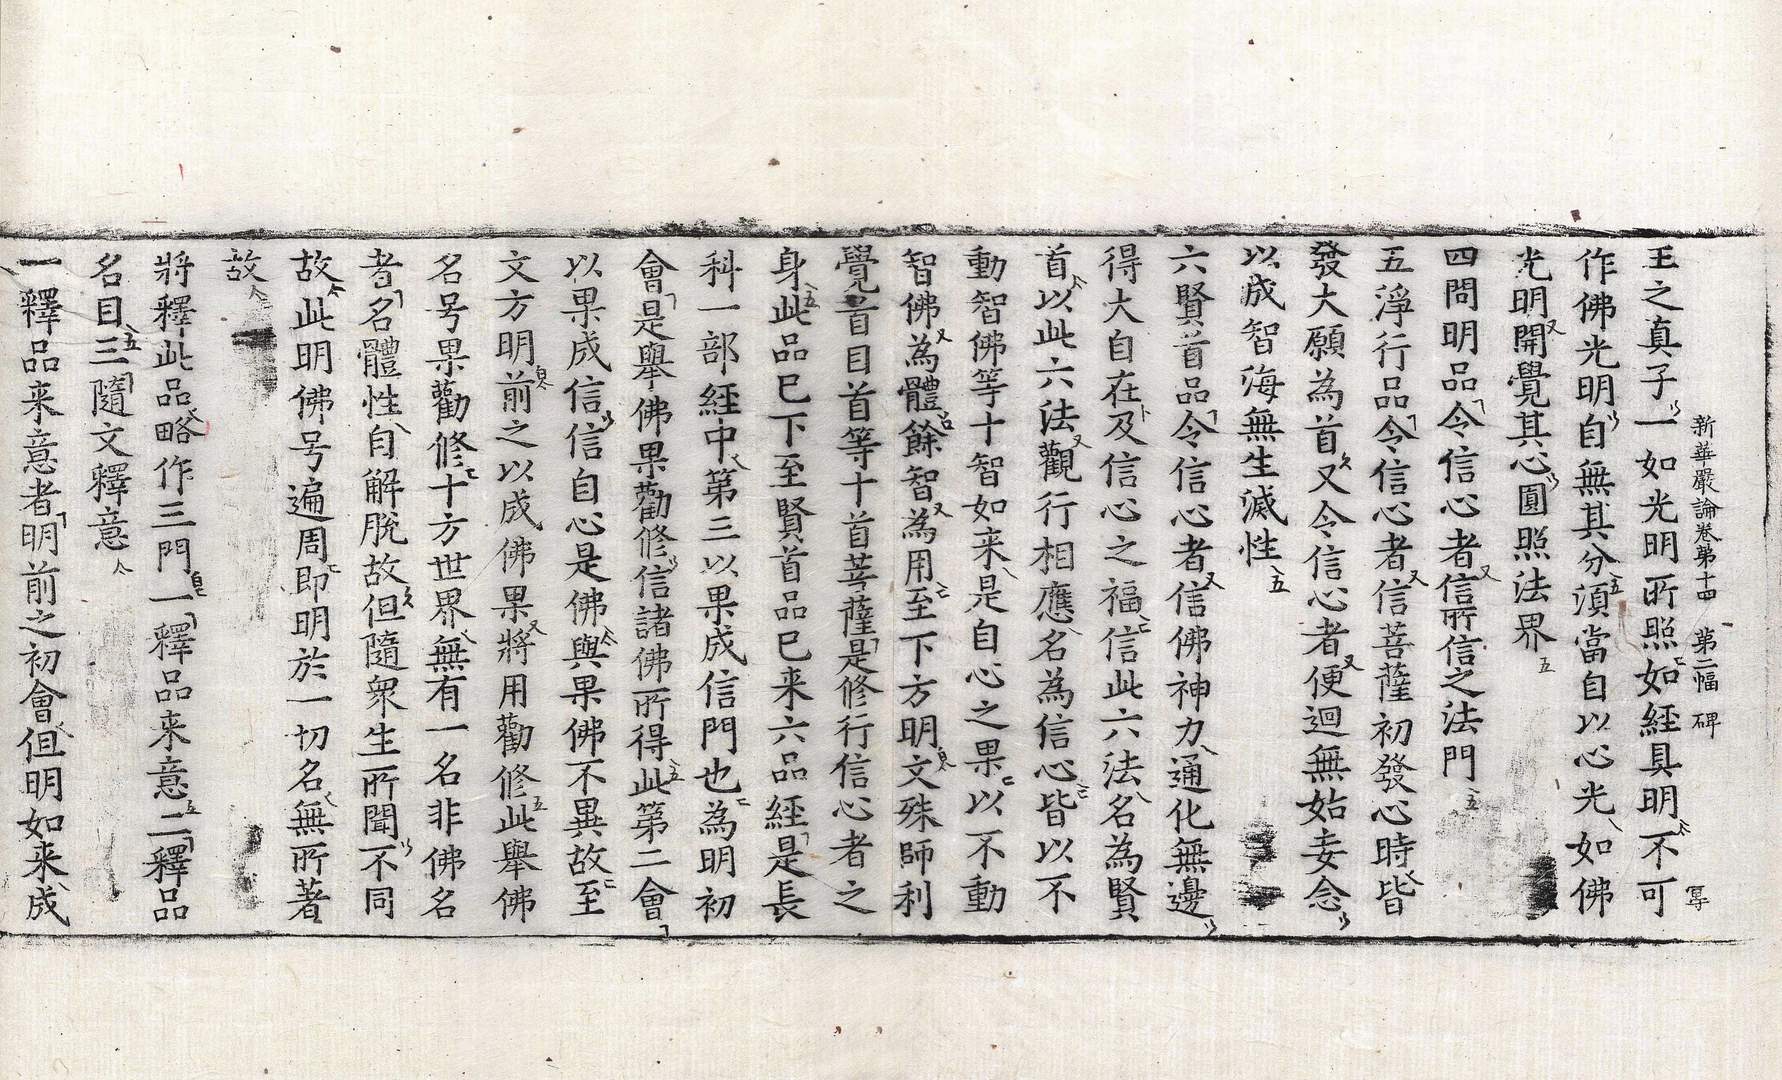 新華嚴論卷第十四 第二幅 碑 
王之真子一如光明所照如經具明不可
作佛光明自無其分湏當自以心光如佛
光明開覺其心圓照法界
四問明品令信心者信所信之法門
五淨行品令信心者信菩薩初發心時皆
發大願為首又令信心者便迴無始妄念
以成智海無生滅性
六賢首品令信心者信佛神力通化無邊
得大自在及信心之福信此六法名為賢
首以此六法觀行相應名為信心皆以不
動智佛等十智如来是自心之果以不動
智佛為體餘智為用至下方明文殊師利
覺首目首等十首菩薩是修行信心者之
身此品已下至賢首品已来六品經是長
科一部經中第三以果成信門也為明初
會是舉佛果勸修信諸佛所得此第二會
以果成信信自心是佛與果佛不異故至
文方明前之以成佛果將用勸修此舉佛
名号果勸修十方世界無有一名非佛名
者名體性自解脫故但隨衆生所聞不同
故此明佛号遍周即明於一切名無所著
故
將釋此品略作三門一釋品来意二釋品
名目三隨文釋意
一釋品来意者明前之初會但明如来成